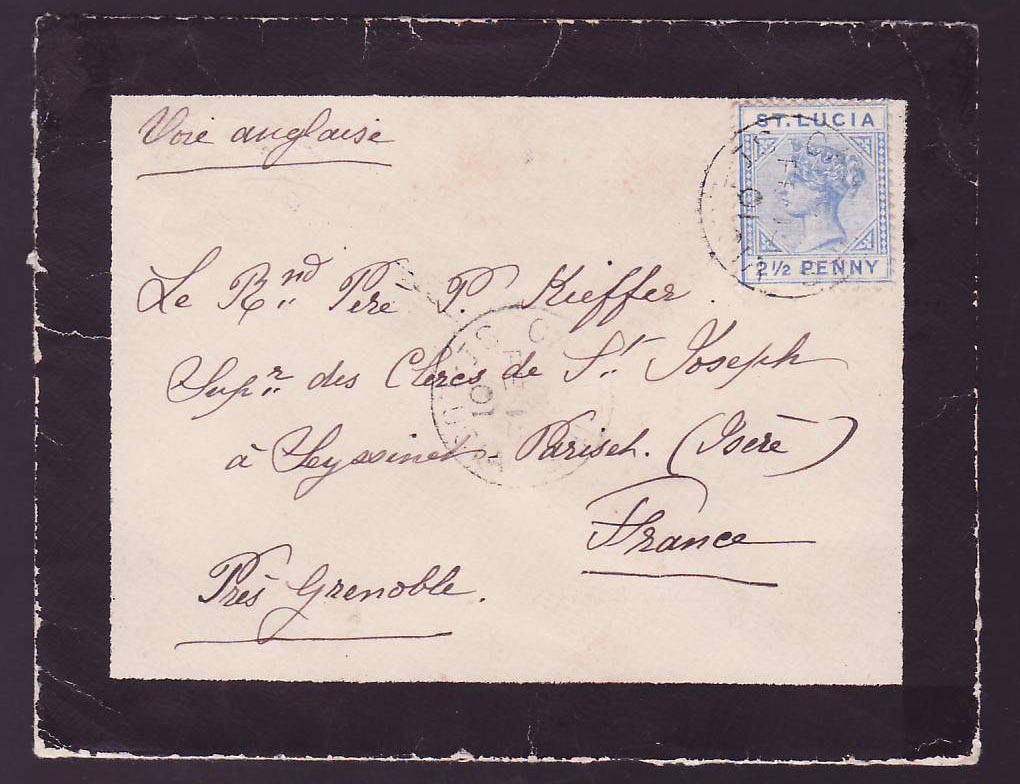 Voie anglaise
ST. LUCIA
2½ PENNY
Le R.nd Père P. Kieffer.
Supr. des Clercs de St. Joseph
à Seyssinet-Pariset. (Isère)
France
Près Grenoble.